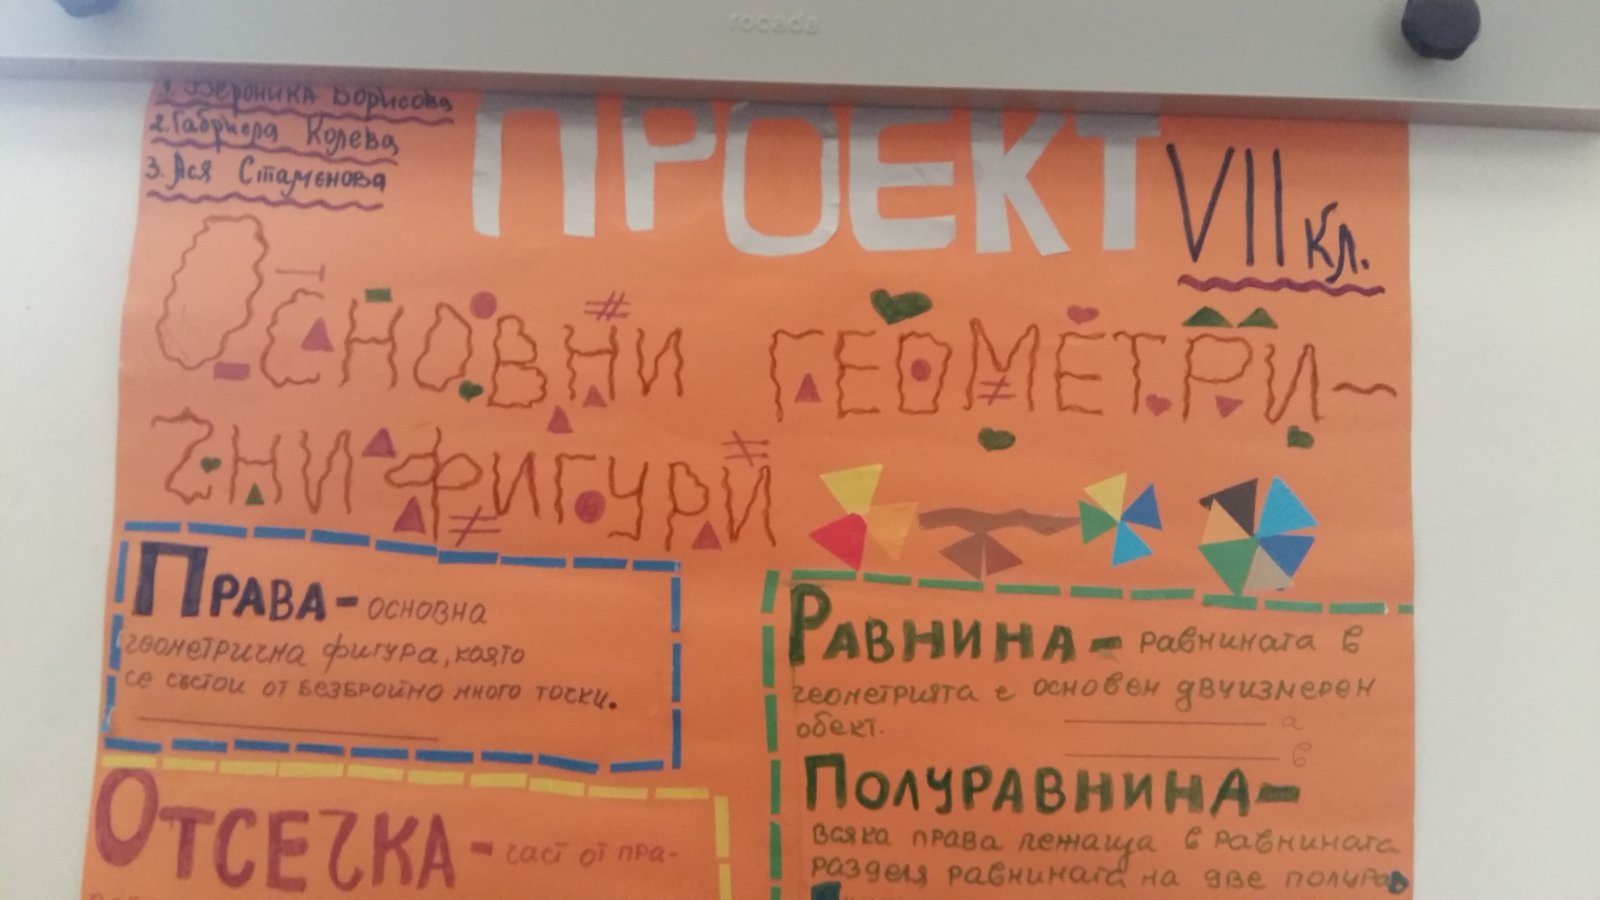 rocada
1. Вероника Борисова
2. Габриела Колева
3. Ася Стаменова
ПРОЕКТ
VII кл.
Основни геометри-
чни фигури
Права - основна
геометрична фигура, която
се състои от безбройно много тоски.
Отсечка - част от пра-
Равнина - равнината в
геометрията е основен двуизмерен
обект.
а
в
Полуравнина-
всяка права лежаща в равнината
разделя равнината на две полурав